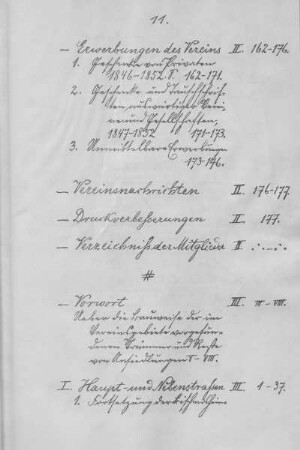 11.
— Erwerbungen des Vereins II. 162-176.
1. Geschenke von Privaten
1846-1852. S. 162-171.
2. Geschenke und Tauschschrif-
ten, auswärtiger Verei-
ne und Gesellschaften,
1847-1852. 171-173.
3. Unmittelbare Erwerbungen
173-176.
— Vereinsnachrichten II. 176-177
— Druckverbesserungen II. 177.
— Verzeichniß der Mitglieder II
#
— Vorwort III. III-VIII.
Ueber die Bauweise der im
Vereinsgebiete vorgefun-
denen Trümmer und Reste
von Ansiedlungen V-VIII.
I. Haupt- und Nebenstraßen III. 1-37.
1. Fortsetzung der